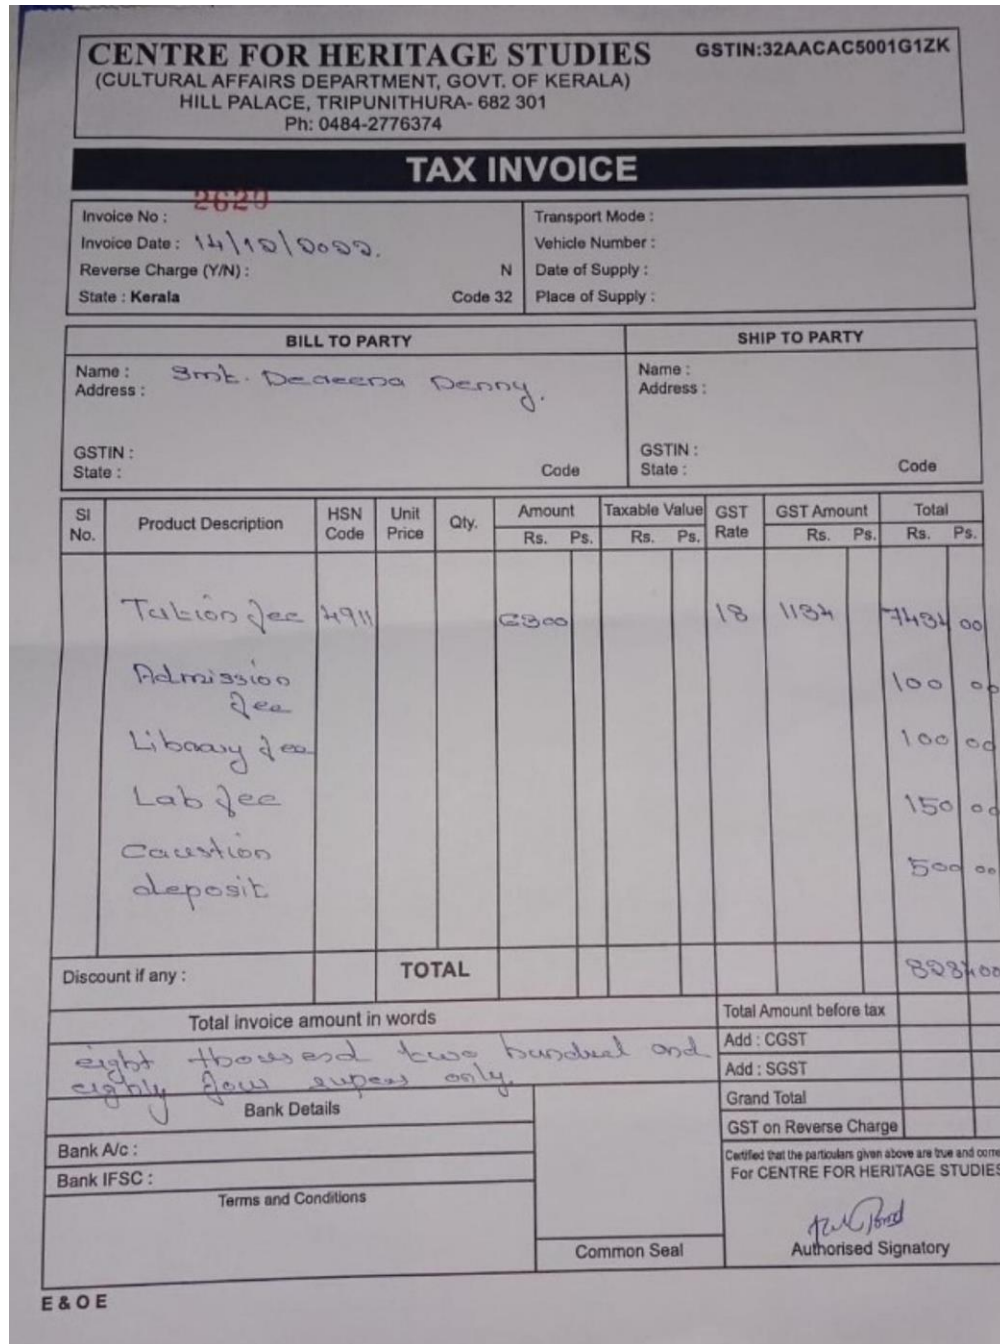 CENTRE FOR HERITAGE STUDIES
GSTIN:32AACAC5001G1ZK
(CULTURAL AFFAIRS DEPARTMENT, GOVT. OF KERALA)
HILL PALACE, TRIPUNITHURA- 682 301
Ph: 0484-2776374
TAX INVOICE
Invoice No : 2629
Invoice Date : 14/12/2022.
Reverse Charge (Y/N) : N
State : Kerala Code 32
Transport Mode :
Vehicle Number :
Date of Supply :
Place of Supply :
BILL TO PARTY
Name : Smt. Denny.
Address :
GSTIN :
State : Code
SHIP TO PARTY
Name :
Address :
GSTIN :
State : Code
Sl No. Product Description HSN Code Unit Price Qty. Amount Taxable Value GST Rate GST Amount Total
Rs. Ps. Rs. Ps. Rs. Ps. Rs. Ps.
Tution fee 4911 6300 18 1134 7434 00
Admission
fee 100 00
Library fee 100 00
Lab fee 150 00
Caustion
deposit 500 00
Discount if any : TOTAL 8284 00
Total invoice amount in words
eight thousend two hundred and
eighty four only.
Total Amount before tax
Add : CGST
Add : SGST
Grand Total
GST on Reverse Charge
Bank Details
Bank A/c :
Bank IFSC :
Terms and Conditions
Common Seal
Certified that the particulars given above are true and corre
For CENTRE FOR HERITAGE STUDIES
Authorised Signatory
E & O E